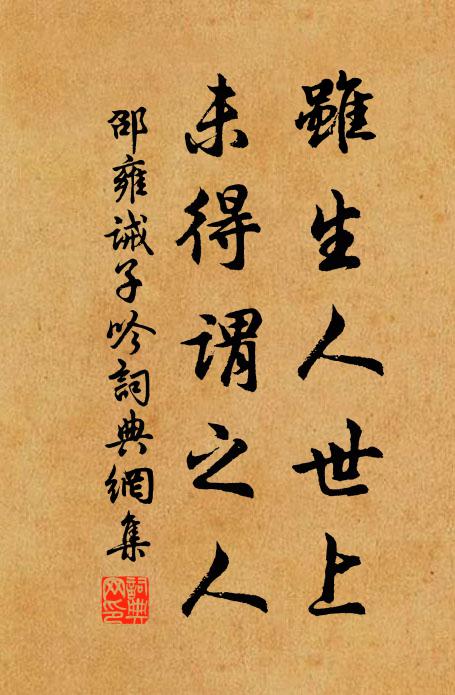 雖生人世上
未得謂之人
邵雍誡子吟詞典網集
詞典網印